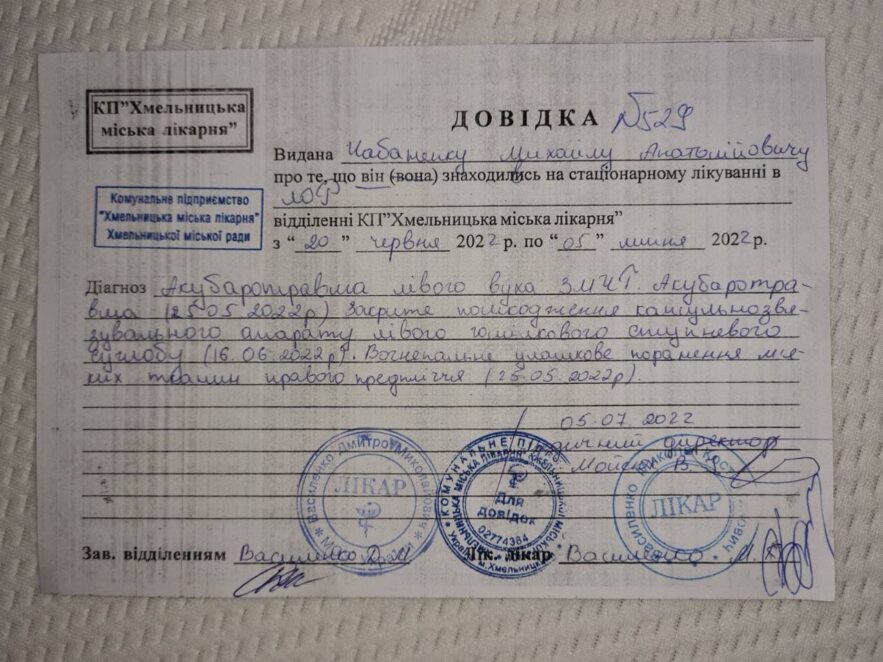 КП"Хмельницька
міська лікарня"
ДОВІДКА №529
Комунальне підприємство
"Хмельницька міська лікарня"
Хмельницької міської ради
Видана Кабаненку Михайлу Анатолійовичу
про те, що він (вона) знаходились на стаціонарному лікуванні в
ЛОР
відділенні КП"Хмельницька міська лікарня"
з "20" червня 2022 р. по "05" липня 2022 р.
Діагноз Акубаротравма лівого вуха ЗМЧТ. Акубаротра-
вма (25.05.2022р) Закрите пошкодження капсульнозвя-
зувального апарату лівого гомілкового ступневого
суглобу (16.06.2022р). Вогнепальне уламкове поранення м'я-
ких тканин правого предпліччя (25.05.2022р).
05.07.2022
директор
В
Василенко Дмитро Миколайович
ЛІКАР
КОМУНАЛЬНЕ
ХМЕЛЬНИЦЬКА МІСЬКА ЛІКАРНЯ
Для
довідок
02774364
м.Хмельницький
Василенко Микола
ЛІКАР
Зав. відділенням Василенко Д.М. Лік. лікар Василенко М.